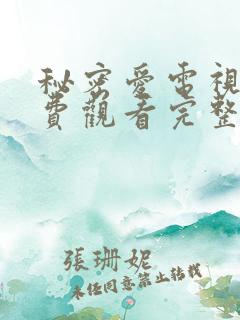 秘密愛電視
費觀看完整
張珊妮
未經同意禁止轉載